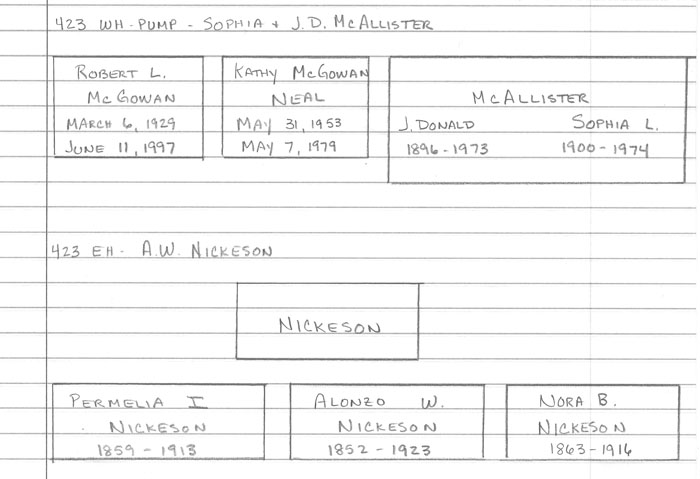 423 WH-PUMP - SOPHIA & J.D. MCALLISTER
ROBERT L.
MCGOWAN
MARCH 6, 1929
JUNE 11, 1997
KATHY MCGOWAN
NEAL
MAY 31, 1953
MAY 7, 1979
MCALLISTER
J. DONALD SOPHIA L.
1896-1973 1900-1974
423 EH- A.W. NICKESON
NICKESON
PERMELIA I
NICKESON
1859-1913
ALONZO W.
NICKESON
1852-1923
NORA B.
NICKESON
1863-1916